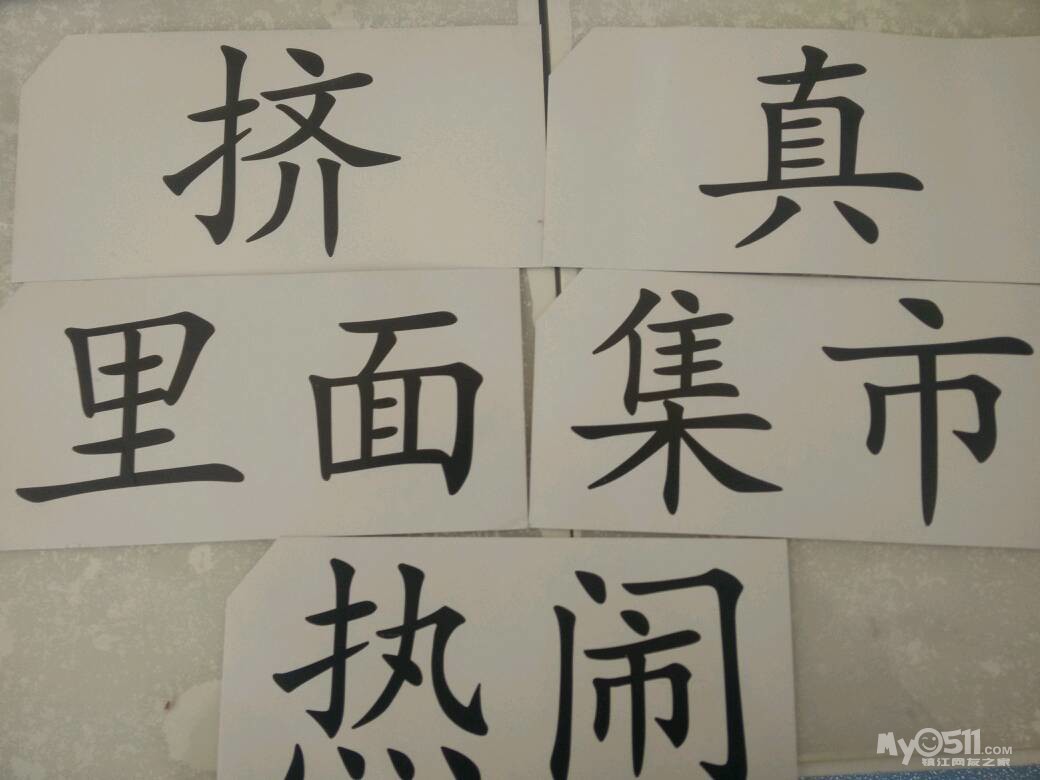 挤 真
里面 集市
热闹
My0511.COM
镇江网友之家